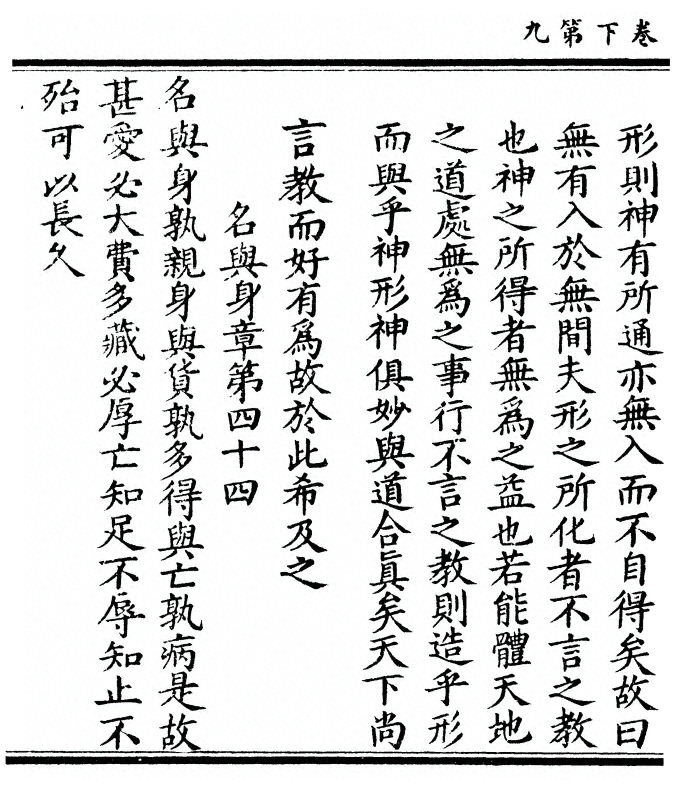 卷下第九
形則神有所通亦無入而不自得矣故曰
無有入於無間夫形之所化者不言之教
也神之所得者無爲之益也若能體天地
之道處無爲之事行不言之教則造乎形
而與乎神形神俱妙與道合眞矣天下尚
言教而好有爲故於此希及之
名與身章第四十四
名與身孰親身與貨孰多得與亡孰病是故
甚愛必大費多藏必厚亡知足不辱知止不
殆可以長久